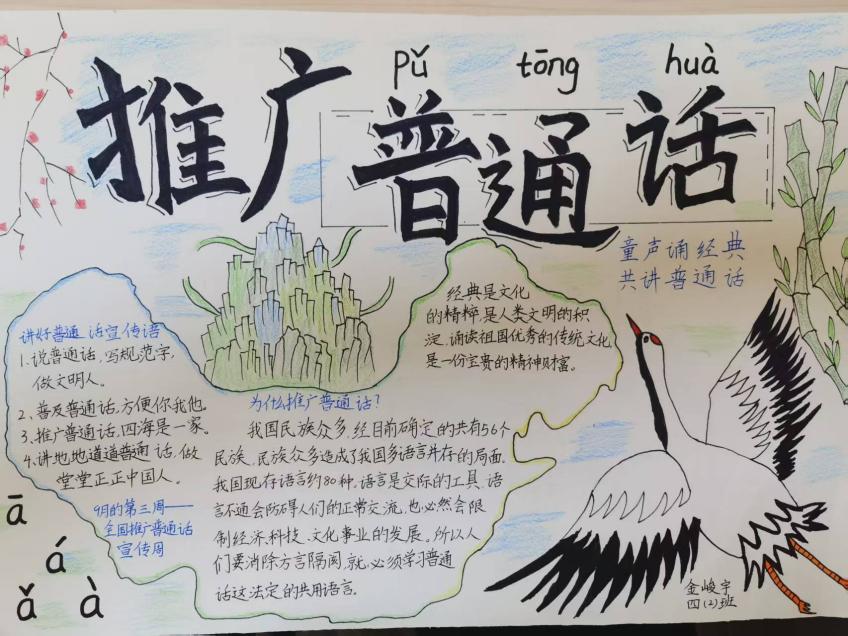 pǔ tōng huà
推广普通话
童声诵经典
共讲普通话
经典是文化
的精粹,是人类文明的积
淀,诵读祖国优秀的传统文化
是一份宝贵的精神财富。
讲好普通话宣传语
1、说普通话,写规范字,
做文明人。
2、普及普通话,方便你我他。
3、推广普通话,四海是一家。
4、讲地地道道普通话,做
堂堂正正中国人。
9月的第三周——
全国推广普通话
宣传周
为什么推广普通话?
我国民族众多,经目前确定的共有56个
民族,民族众多造成了我国多语言并存的局面。
我国现存语言约80种,语言是交际的工具,语
言不通会防碍人们的正常交流,也必然会限
制经济,科技、文化事业的发展。所以人
们要消除方言隔阂,就必须学习普通
话这法定的共用语言。
ā
á
ǎ à
金峻宇
四(2)班